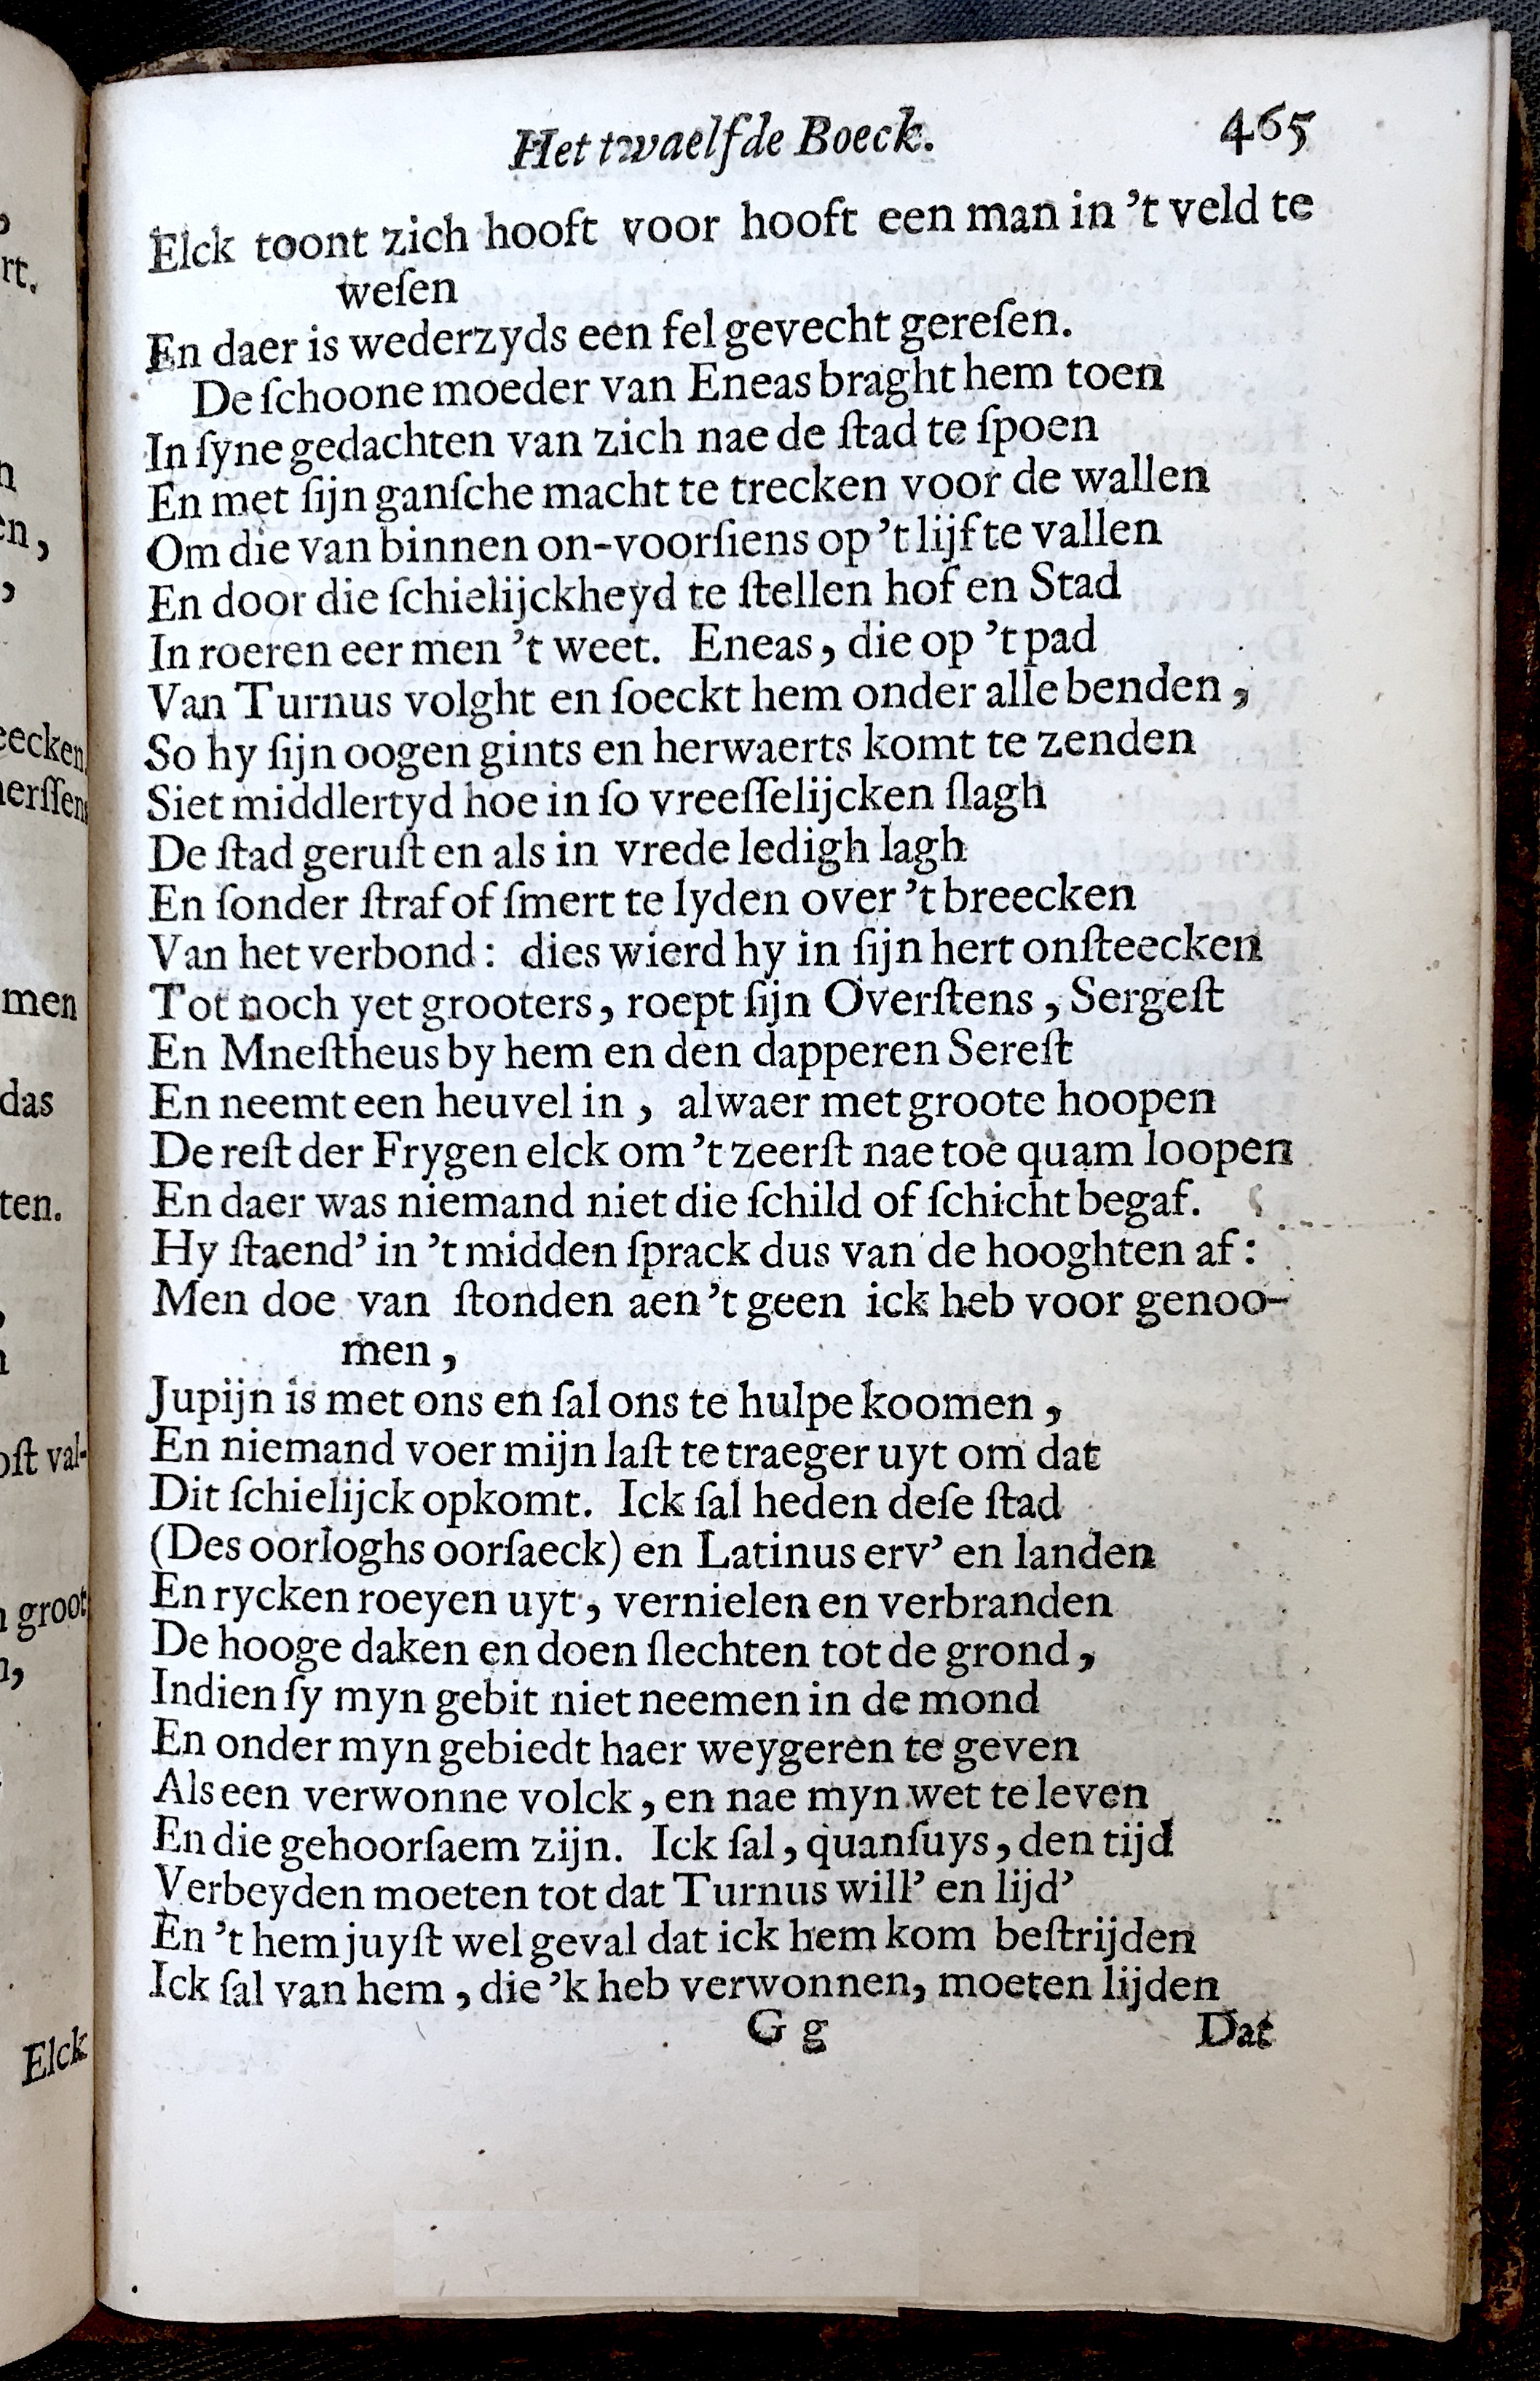 Het twaelfde Boeck. 465
Elck toont zich hooft voor hooft een man in 't veld te
weſen
En daer is wederzyds een fel gevecht gereſen.
De ſchoone moeder van Eneas braght hem toen
In ſyne gedachten van zich nae de ſtad te ſpoen
En met ſijn ganſche macht te trecken voor de wallen
Om die van binnen on-voorſiens op 't lijf te vallen
En door die ſchielijckheyd te ſtellen hof en Stad
In roeren eer men 't weet. Eneas, die op 't pad
Van Turnus volght en ſoeckt hem onder alle benden,
So hy ſijn oogen gints en herwaerts komt te zenden
Siet middlertyd hoe in ſo vreeſſelijcken ſlagh
De ſtad geruſt en als in vrede ledigh lagh
En ſonder ſtraf of ſmert te lyden over 't breecken
Van het verbond: dies wierd hy in ſijn hert onſteecken
Tot noch yet grooters, roept ſijn Overſtens, Sergeſt
En Mneſtheus by hem en den dapperen Sereſt
En neemt een heuvel in, alwaer met groote hoopen
De reſt der Frygen elck om 't zeerſt nae toe quam loopen
En daer was niemand niet die ſchild of ſchicht begaf.
Hy ſtaend' in 't midden ſprack dus van de hooghten af:
Men doe van ſtonden aen 't geen ick heb voor genoo-
men,
Jupijn is met ons en ſal ons te hulpe koomen,
En niemand voer mijn laſt te traeger uyt om dat
Dit ſchielijck opkomt. Ick ſal heden deſe ſtad
(Des oorloghs oorſaeck) en Latinus erv' en landen
En rycken roeyen uyt, vernielen en verbranden
De hooge daken en doen ſlechten tot de grond,
Indien ſy myn gebit niet neemen in de mond
En onder myn gebiedt haer weygeren te geven
Als een verwonne volck, en nae myn wet te leven
En die gehoorſaem zijn. Ick ſal, quanſuys, den tijd
Verbeyden moeten tot dat Turnus will' en lijd'
En 't hem juyſt wel geval dat ick hem kom beſtrijden
Ick ſal van hem, die 'k heb verwonnen, moeten lijden
G g Dat
rt.
n
en,
eecken
men
das
ten.
oſt val-
groot
Elck